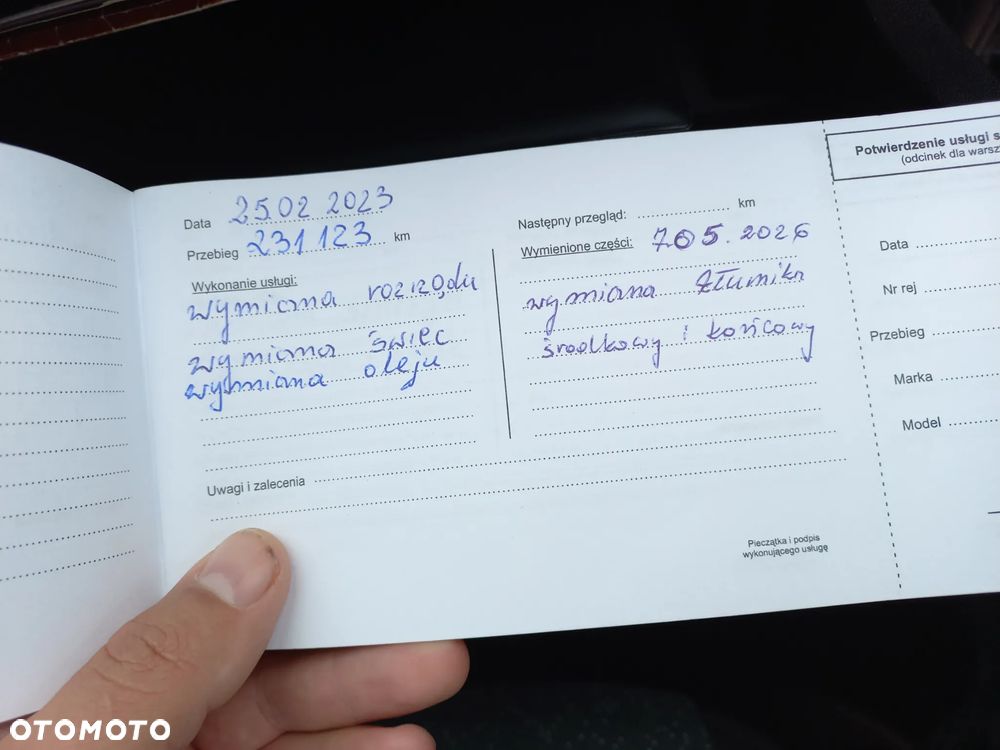 Data 25.02 2023
Przebieg 231 123 km
Wykonanie usługi:
wymiana rozrządu
wymiana świec
wymiana oleju
Następny przegląd: km
Wymienione części: 705.2026
wymiana tłumika
środkowy i końcowy
Uwagi i zalecenia
Pieczątka i podpis
wykonującego usługę
Potwierdzenie usługi s
(odcinek dla warsz
Data
Nr rej
Przebieg
Marka
Model
OTOMOTO